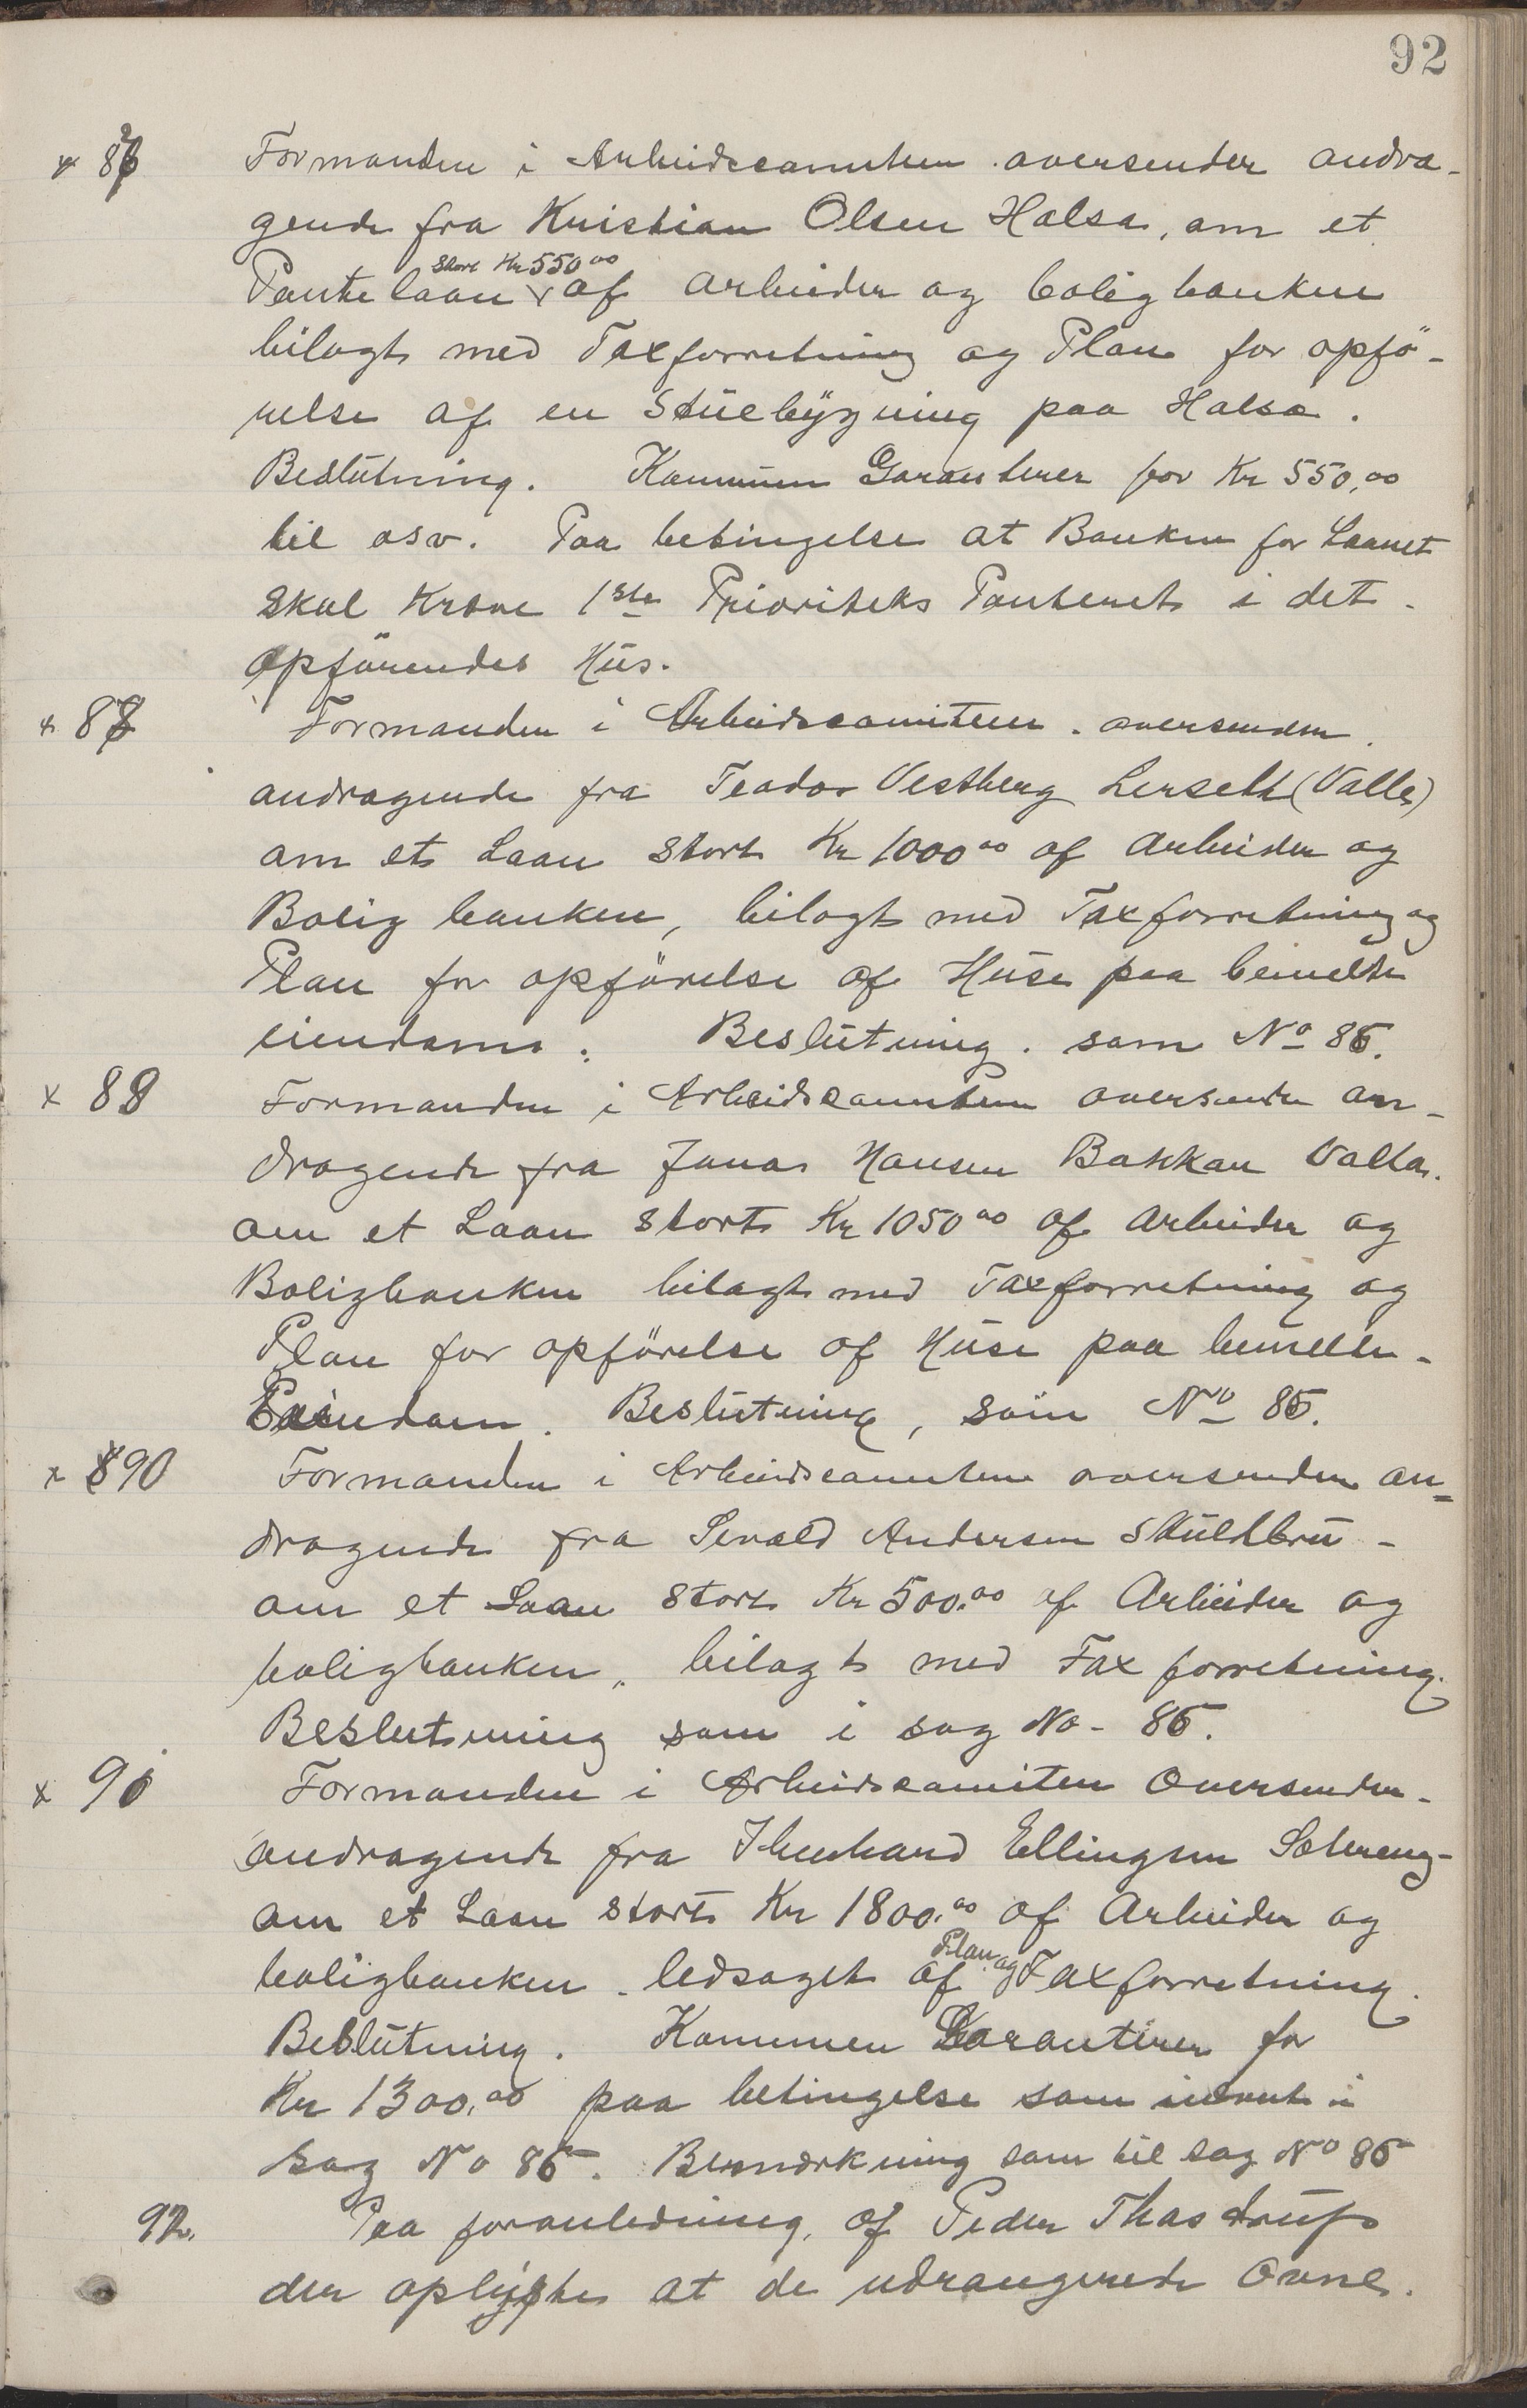 92
x 86 Formanden i Arbeidscomiteen oversender andra-
gende fra Kristian Olsen Halsa, om et
stort Kr 550 00
Pantelaan af arbeider og boligbanken
bilagt med Taxforretning og Plan for opfö-
relse af en Stuebygning paa Halsa.
Beslutning. Kommunen Garanterer for Kr 550,00
til osv. Paa betingelse at Banken for Laanet
skal Kræve 1ste Prioritets Panteret i det
opförendes Hus.
x 87 Formanden i Arbeidscomiteen oversender
andragende fra Teodor Vestberg Lersett (Valla)
om et Laan stort Kr 1000 00 af arbeider og
Bolig banken, bilagt med Taxforretning og
Plan for opförelse af Huse paa bemeldte
eiendom. Beslutning. som No 86.
x 88 Formanden i Arbeidscomiteen oversender an-
dragende fra Jonas Hansen Bakkan Valla.
om et Laan stort Kr 1050 00 af arbeider og
Boligbanken bilagt med Taxforretning og
Plan for opförelse af Huse paa bemeldte-
Eiendom. Beslutning, som No 86.
x 90 Formanden i Arbeidscomiteen oversender an-
dragende fra Sevald Andersen
om et Laan stort Kr 500.00 af Arbeider og
boligbanken, bilagt med Tax forretning.
Beslutning som i sag No- 86.
x 91 Formanden i Arbeidscomiteen Oversender-
andragende fra Ellingsen
om et Laan stort Kr 1800.00 af Arbeider og
Plan og
boligbanken. ledsaget af Taxforretning.
Beslutning. Kommunen Garanterer for
Kr 1300.00 paa betingelse som i
sag No 86. Bemærkning som til sag No 86
92. Paa foranledning, af Peder Thrastrup
der oplyste at de udrangerede Ovne.